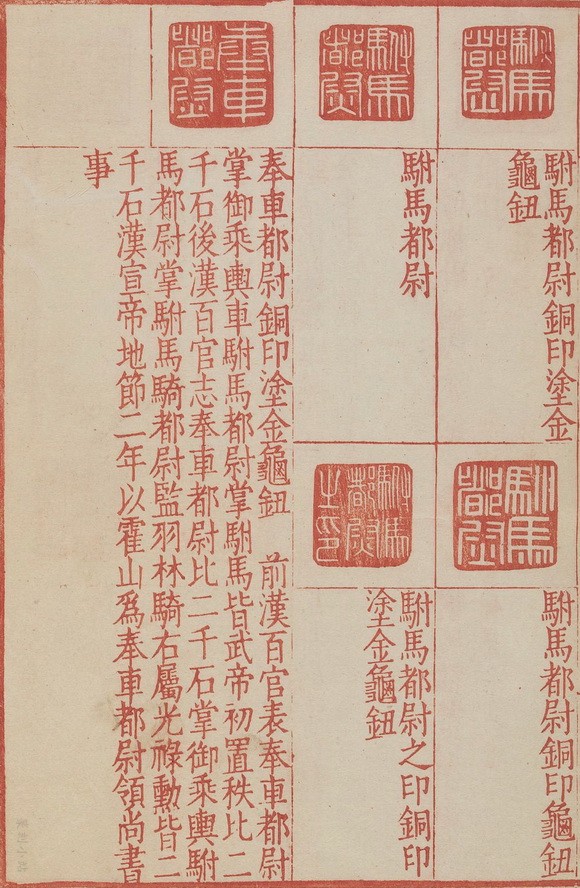 駙馬
都尉
駙馬都尉銅印塗金
龜鈕
駙馬
都尉
駙馬都尉銅印龜鈕
駙馬
都尉
駙馬都尉
駙馬
都尉
之印
駙馬都尉之印銅印
塗金龜鈕
奉車
都尉
奉車都尉銅印塗金龜鈕　前漢百官表奉車都尉
掌御乘輿車駙馬都尉掌駙馬皆武帝初置秩比二
千石後漢百官志奉車都尉比二千石掌御乘輿駙
馬都尉掌駙馬騎都尉監羽林騎右屬光祿勳皆二
千石漢宣帝地節二年以霍山爲奉車都尉領尚書
事